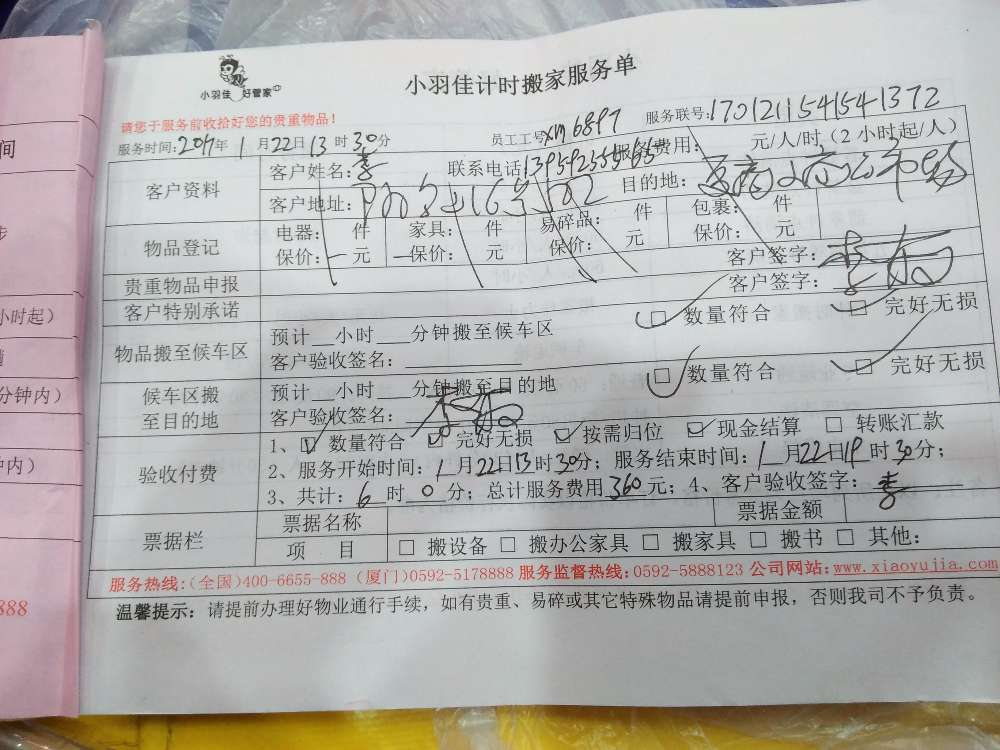 小羽佳 好管家
小羽佳计时搬家服务单
请您于服务前收拾好您的贵重物品!
员工工号xm6897 服务联号:1701211541541372
服务时间:2017年1月22日13时30分
服务费用: 元/人/时(2小时起/人)
客户资料 客户姓名:李 联系电话
客户地址: 目的地:
物品登记 电器: 件 家具: 件 易碎品: 件 包裹: 件
保价: 元 保价: 元 保价: 元 保价: 元
贵重物品申报 客户签字:
客户特别承诺 客户签字:
物品搬至候车区 预计__小时___分钟搬至候车区 数量符合 完好无损
客户验收签名:
候车区搬至目的地 预计__小时___分钟搬至目的地 数量符合 完好无损
客户验收签名:
验收付费 1、数量符合 完好无损 按需归位 现金结算 转账汇款
2、服务开始时间:1月22日13时30分;服务结束时间:1月22日19时30分;
3、共计:6时0分;总计服务费用360元;4、客户验收签字:李
票据栏 票据名称 票据金额
项 目 搬设备 搬办公家具 搬家具 搬书 其他:
服务热线:(全国)400-6655-888 (厦门)0592-5178888 服务监督热线:0592-5888123 公司网站:www.xiaoyujia.com
温馨提示:请提前办理好物业通行手续,如有贵重、易碎或其它特殊物品请提前申报,否则我司不予负责。
间
小时起)
分钟内)
钟内)
888